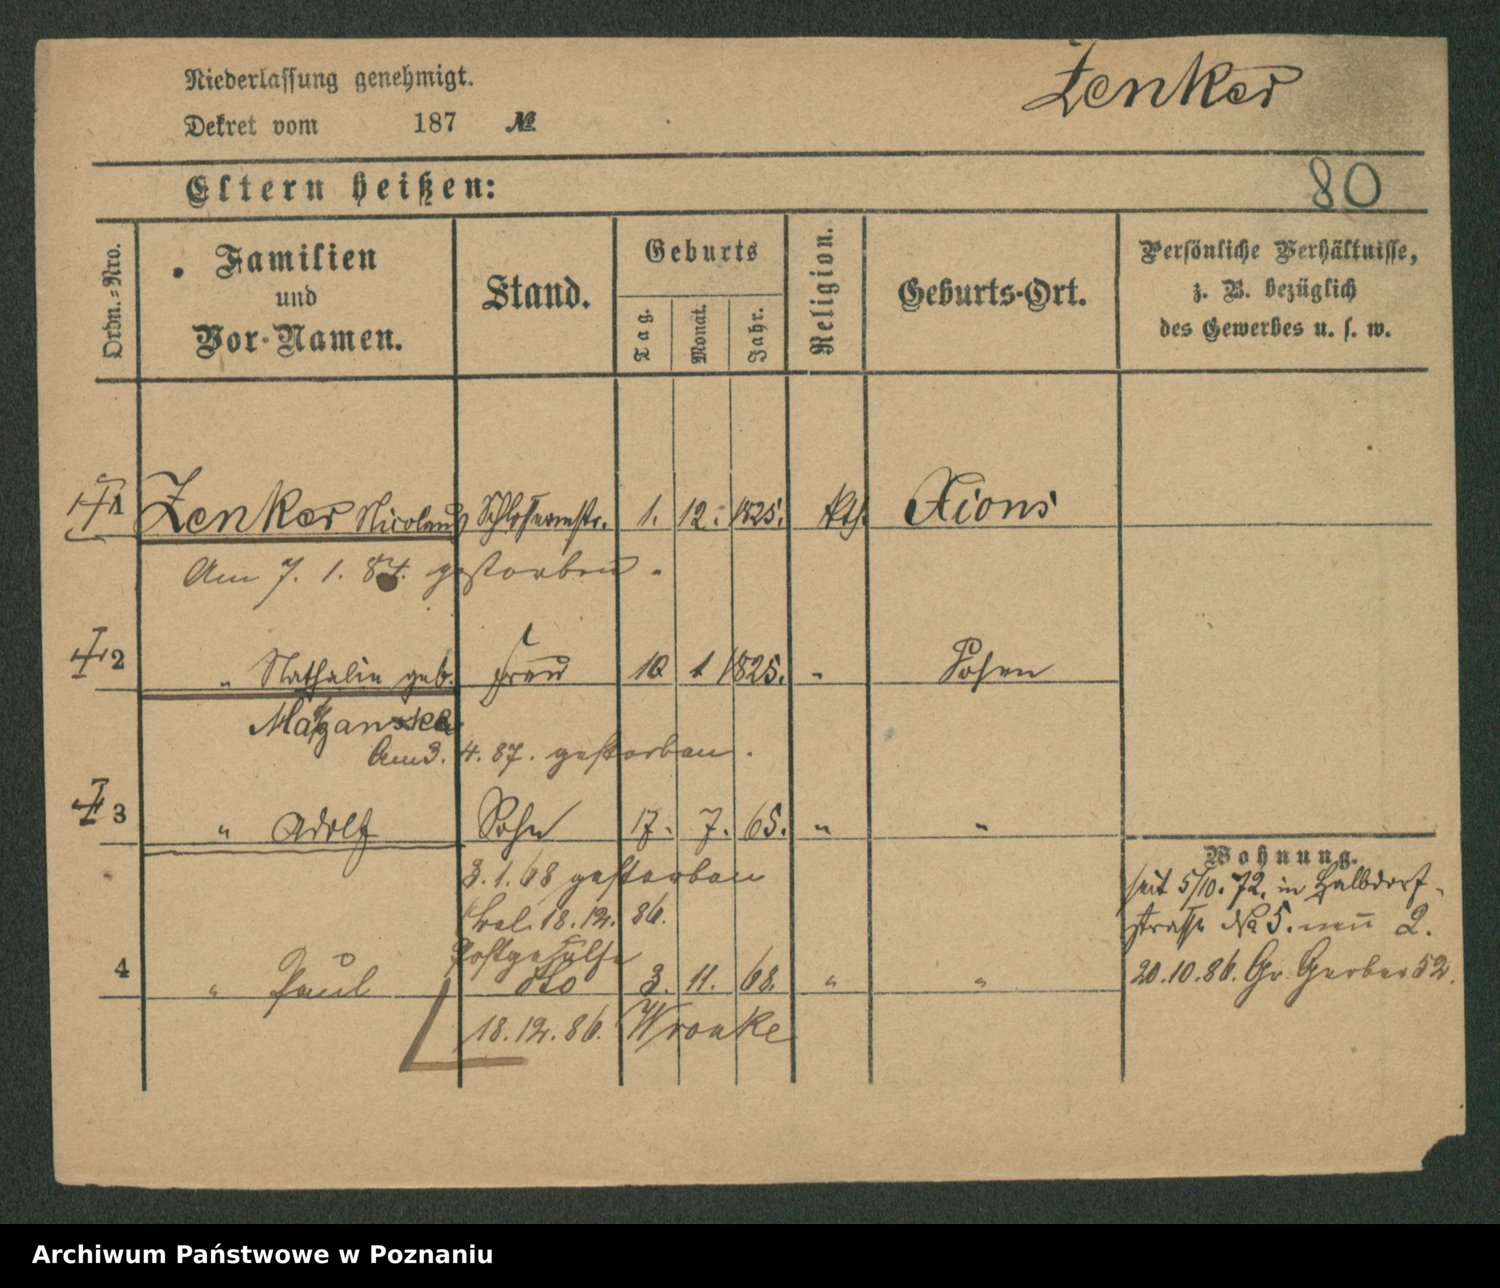 Niederlassung genehmigt.
Zenker
Dekret vom 187 №
Eltern heißen:
80
Ordn.-Nro.
Familien
und
Vor-Namen.
Stand.
Geburts
Tag.
Monat.
Jahr.
Religion.
Geburts-Ort.
Persönliche Verhältnisse,
z. B. bezüglich
des Gewerbes u. s. w.
1 Zenker Nicolaus Schlossermstr. 1. 12. 1825. kth. Xions
Am 7. 1. 84. gestorben.
2 " Nathalie geb. Frau 10 1 1825. " Posen
Am 3. 4. 87. gestorben.
3 " Adolf Sohn 17. 7. 65. " "
3. 1. 68 gestorben
18. 12. 86.
Postgehülfe
4 " Paul dto 3. 11. 68. " "
18. 12. 86. Wronke
Wohnung.
seit 5/10. 72. in Halbdorf-
strasse No 5. neu 2.
20. 10. 86. Gr. Gerber 52.
Archiwum Państwowe w Poznaniu